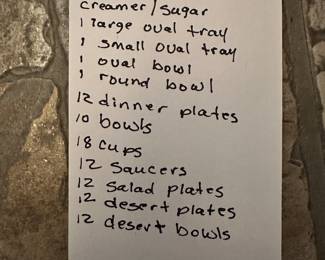 creamer/sugar
1 large oval tray
1 small oval tray
1 oval bowl
1 round bowl
12 dinner plates
10 bowls
18 cups
12 saucers
12 salad plates
12 desert plates
12 desert bowls